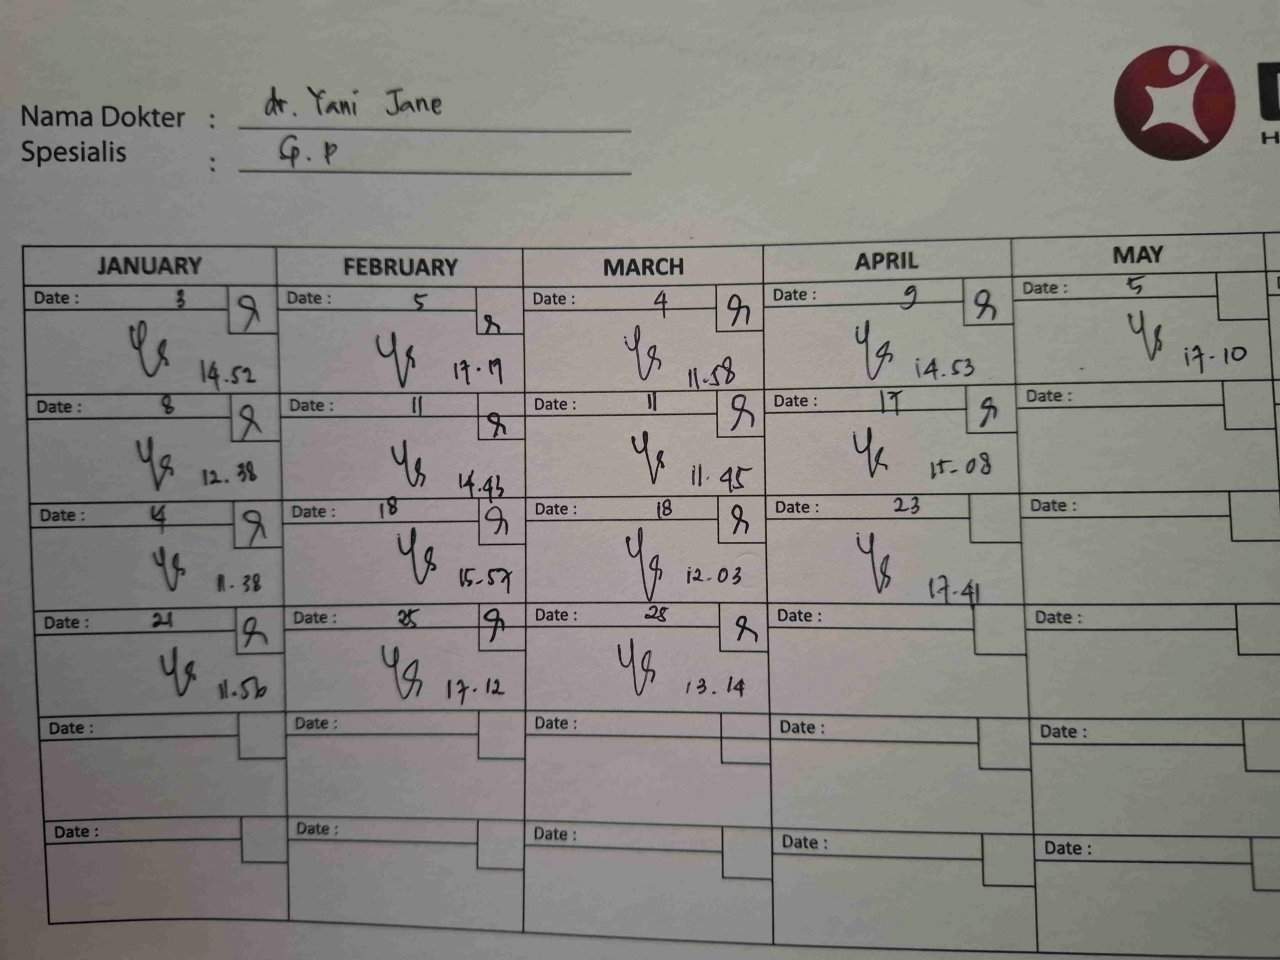 Nama Dokter : dr. Yani Jane
Spesialis : G.P
H
JANUARY FEBRUARY MARCH APRIL MAY
Date : 3 Date : 5 Date : 4 Date : 9 Date : 5
14.52 17.19 11.58 14.53 17-10
Date : 8 Date : 11 Date : 11 Date : 17 Date :
12.38 14.43 11.45 15-08
Date : 14 Date : 18 Date : 18 Date : 23 Date :
11-38 15-57 12.03 17.41
Date : 21 Date : 25 Date : 28 Date : Date :
11.56 17.12 13.14
Date : Date : Date : Date : Date :
Date : Date : Date : Date : Date :